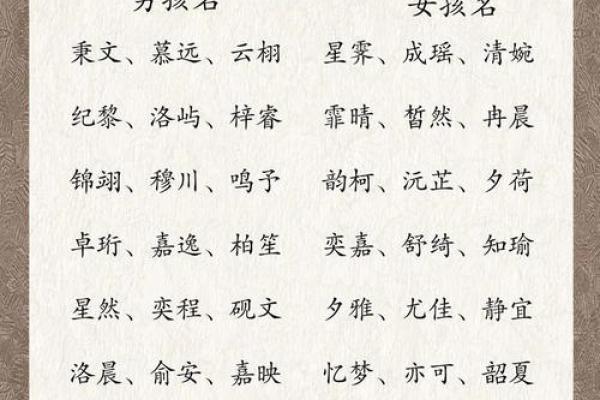 男孩名
女孩名
秉文、慕远、云栩
星霁、成瑶、清婉
纪黎、洛屿、梓睿
霏晴、皙然、冉晨
锦翊、穆川、鸣予
韵柯、沅芷、夕荷
卓珩、嘉逸、柏笙
奕嘉、舒绮、知瑜
星然、奕程、砚文
夕雅、尤佳、静宜
洛晨、俞安、嘉映
忆梦、亦可、韶夏